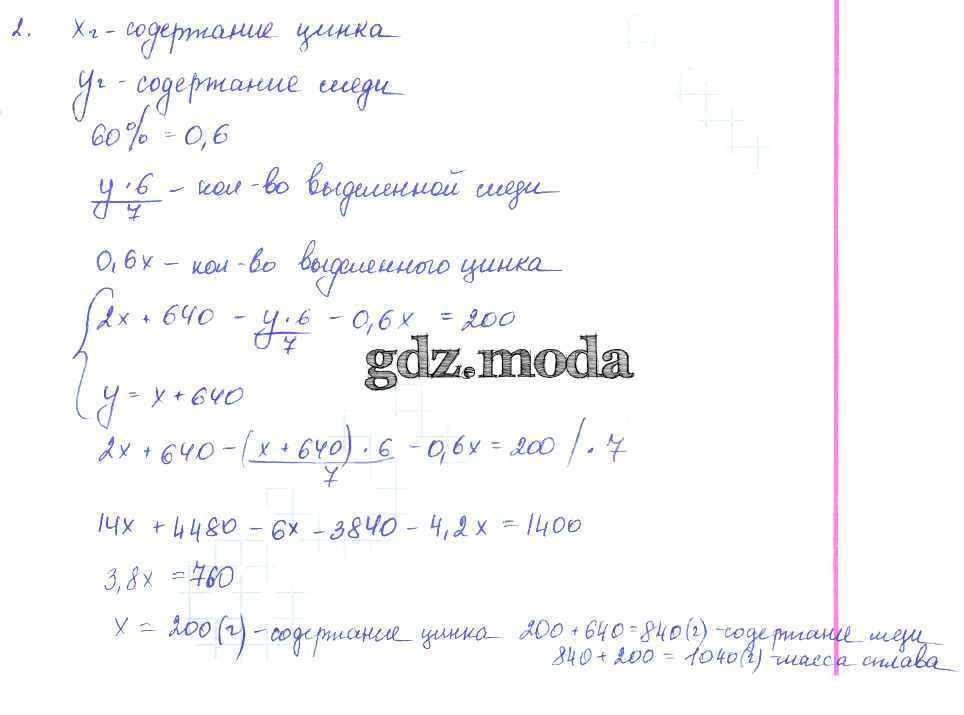 2. xг - содержание цинка
yг - содержание меди
60% = 0,6
y·6/7 - кол-во выделенной меди
0,6x - кол-во выделенного цинка
2x + 640 - y·6/7 - 0,6x = 200
gdz.moda
y = x + 640
2x + 640 - (x + 640)·6/7 - 0,6x = 200 /·7
14x + 4480 - 6x - 3840 - 4,2x = 1400
3,8x = 760
x = 200(г) - содержание цинка 200 + 640 = 840(г) - содержание меди
840 + 200 = 1040(г) - масса сплава